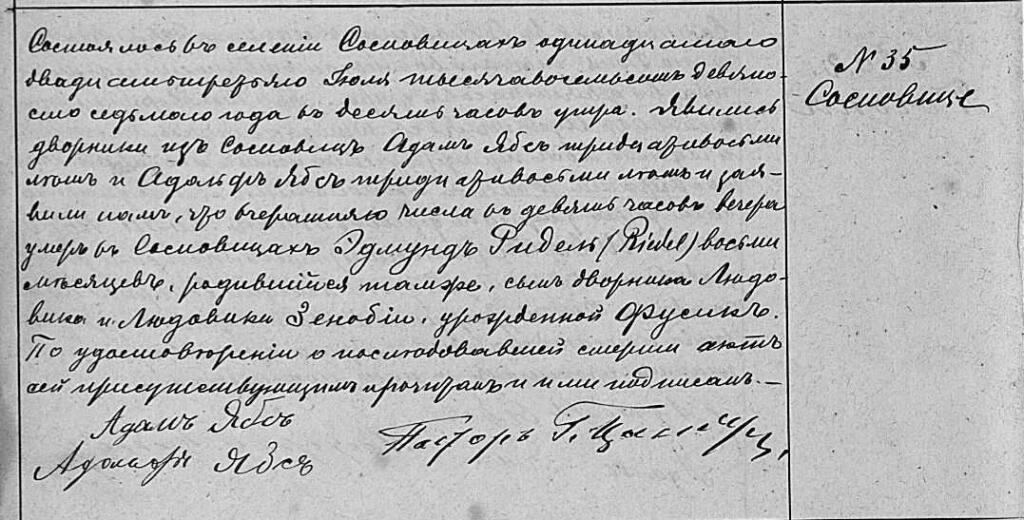 Состоялось въ селеніи Сосновицахъ одинадцатаго
двадцать третьяго Іюля тысяча восемьсотъ девяно-
сто седьмого года въ десять часовъ утра. Явились
дворники изъ Сосновицъ Адамъ Ябсъ тридцати восьми
лѣтъ и Адольфъ Ябсъ тридцати восьми лѣтъ и зая-
вили намъ, что вчерашняго числа въ девять часовъ вечера
умеръ въ Сосновицахъ Эдмундъ Ридель (Riedel) восьми
мѣсяцевъ, родившійся тамже, сынъ дворника Людо-
вика и Людовики Зенобіи, урожденной Фусикъ.
По удостовѣреніи о послѣдовавшей смерти актъ
сей присутствующимъ прочитанъ и ими подписанъ. —
Адамъ Ябсъ
Адольфъ Ябсъ
Пасторъ Г.
№ 35
Сосновице